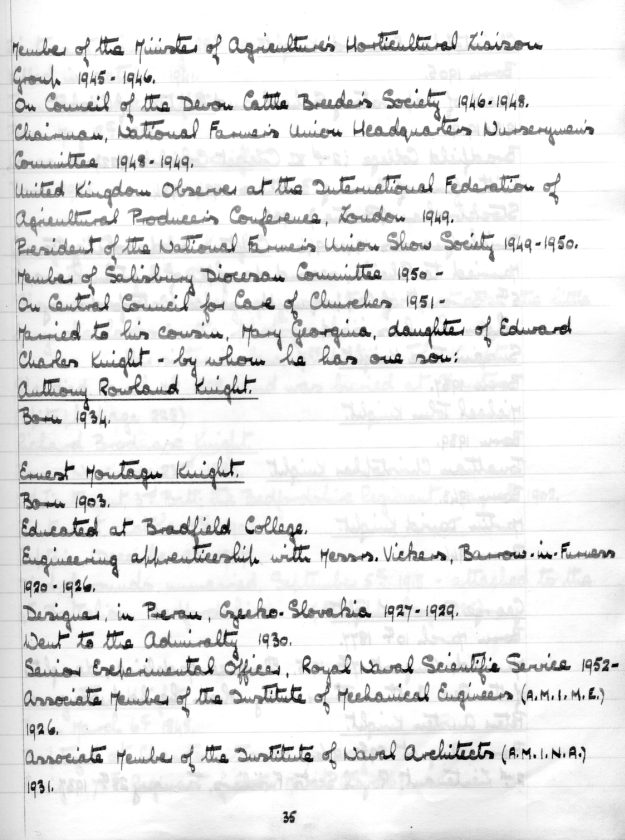 Member of the Minister of Agriculture's Horticultural Liaison
Group 1945 - 1946.
On Council of the Devon Cattle Breeder's Society 1946 - 1948.
Chairman, National Farmer's Union Headquarters Nurserymen's
Committee 1948 - 1949.
United Kingdom Observer at the International Federation of
Agricultural Producer's Conference, London 1949.
President of the National Farmer's Union Show Society 1949 - 1950.
Member of Salisbury Diocesan Committee 1950 -
On Central Council for Care of Churches 1951 -
Married to his cousin, Mary Georgina, daughter of Edward
Charles Knight - by whom he has one son:
Anthony Rowland Knight.
Born 1934.
Ernest Montagu Knight.
Born 1903.
Educated at Bradfield College.
Engineering apprenticeship with Messrs. Vickers, Barrow-in-Furness
1920 - 1926.
Designer, in Prerau, Czecko-Slovakia 1927 - 1929.
Went to the Admiralty 1930.
Senior Experimental Officer, Royal Naval Scientific Service 1952 -
Associate Member of the Institute of Mechanical Engineers (A.M.I.M.E.)
1926.
Associate Member of the Institute of Naval Architects (A.M.I.N.A.)
1931.
35